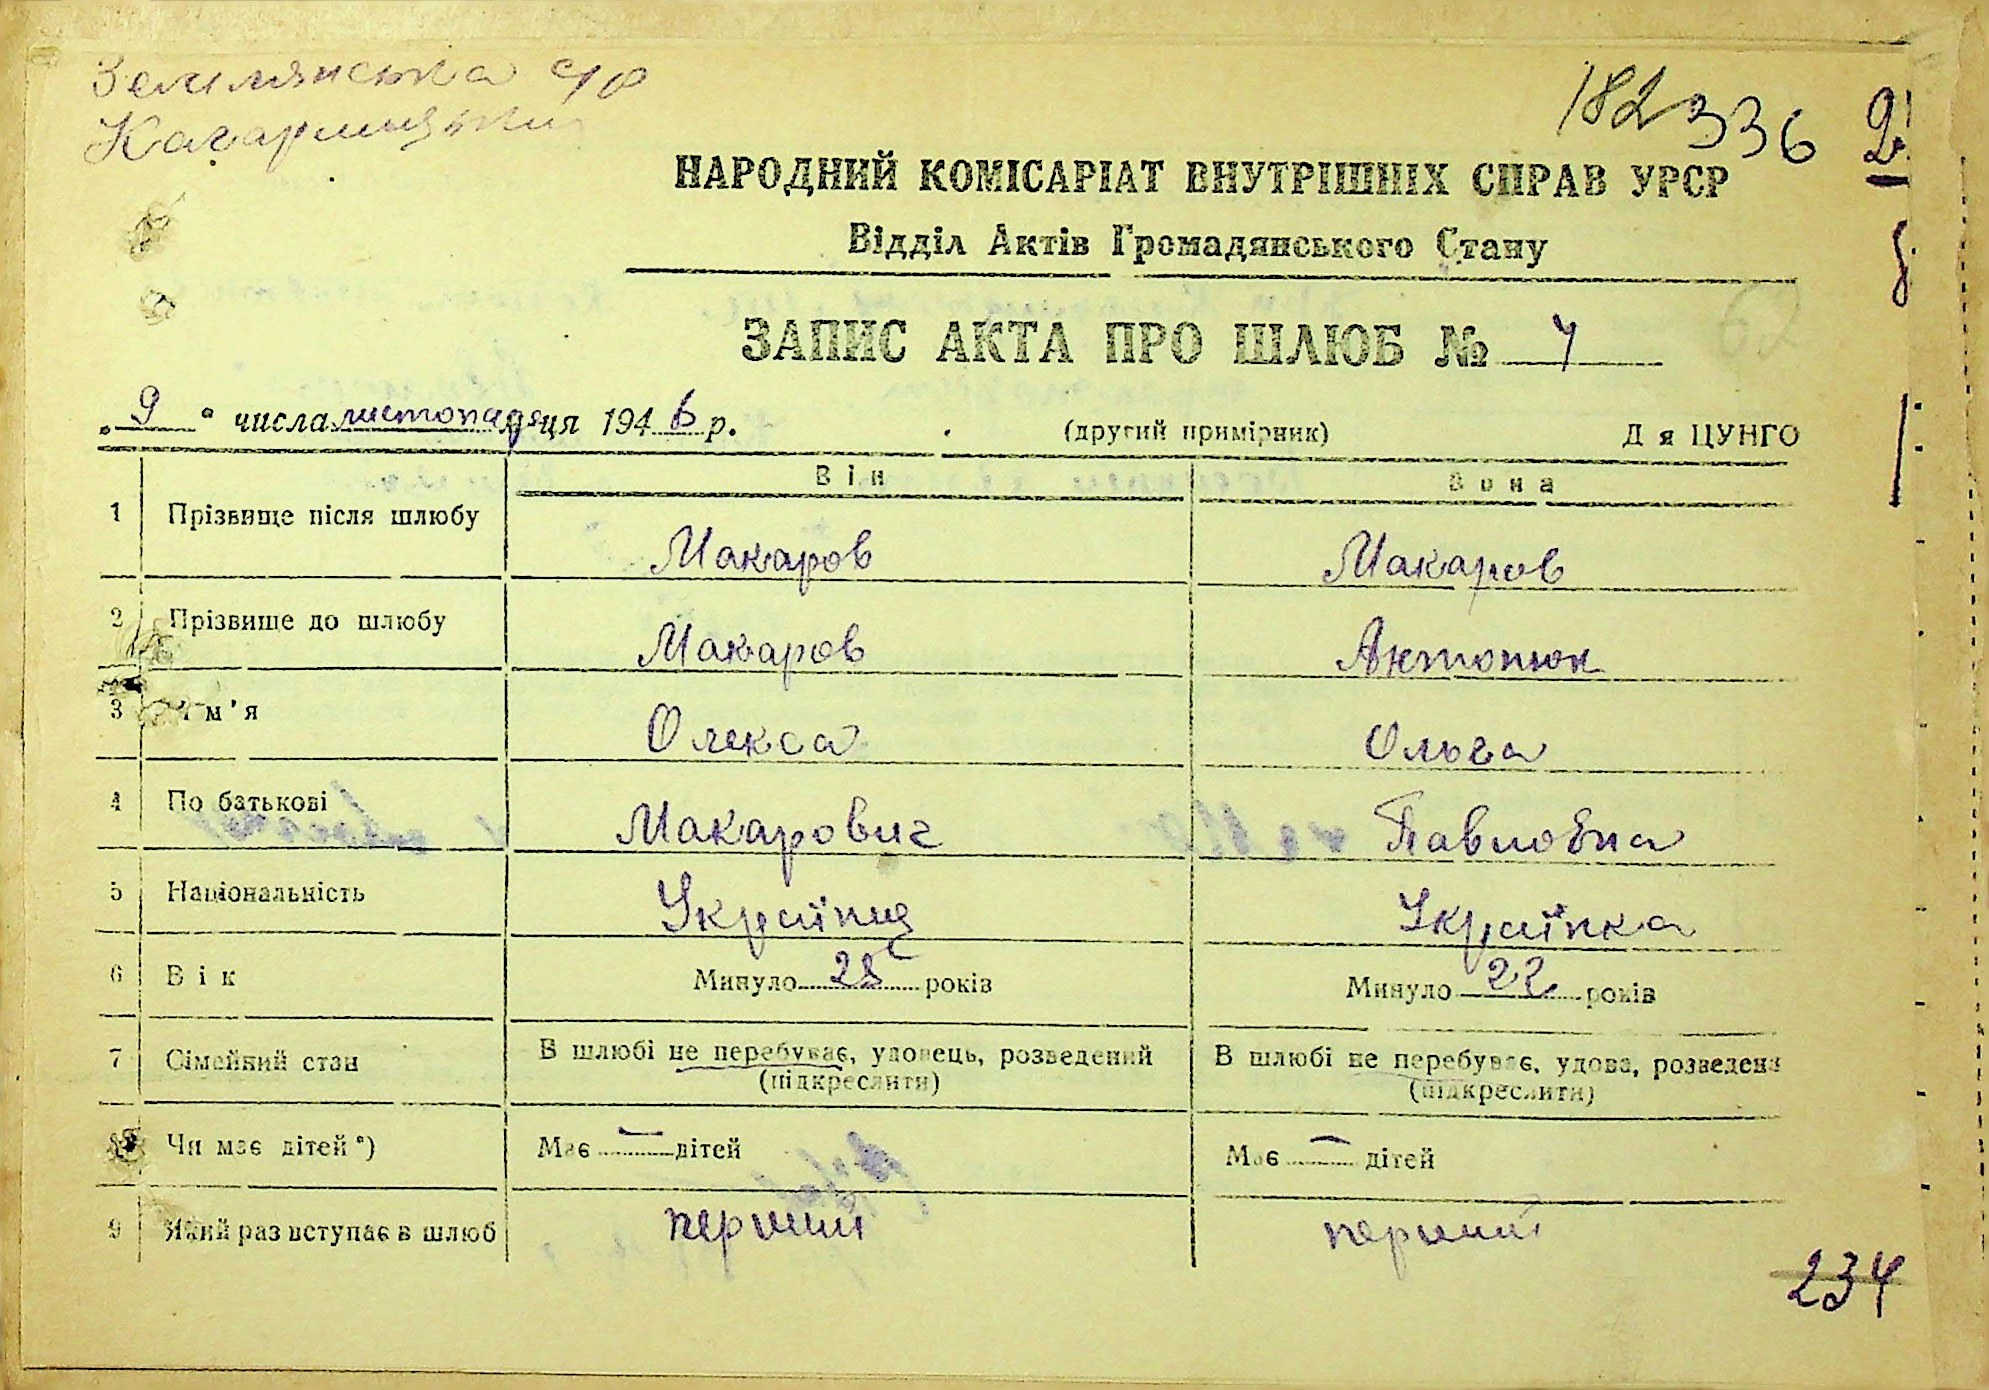 Землянська с/р
Кагарлицький
182 336 2
НАРОДНИЙ КОМІСАРІАТ ВНУТРІШНІХ СПРАВ УРСР
Відділ Актів Громадянського Стану
62
ЗАПИС АКТА ПРО ШЛЮБ № 4
„ 9 “ числа листопада м-ця 1946 р.
(другий примірник) Д я ЦУНГО
Він Вона
1 Прізвище після шлюбу Макаров Макаров
2 Прізвище до шлюбу Макаров Антонюк
3 м'я Олекса Ольга
4 По батькові Макарович Павловна
5 Національність Українец Українка
6 Вік Минуло 28 років Минуло 22 років
7 Сімейний стан В шлюбі не перебуває, удовець, розведений В шлюбі не перебуває, удова, розведена
(підкреслити) (підкреслити)
8 Чи має дітей*) Має — дітей Має — дітей
9 Який раз вступає в шлюб перший перший
234